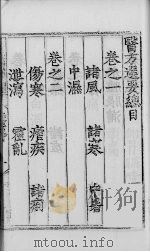 醫方選要總目
卷之一
諸風 諸寒
中濕
卷之二
傷寒 瘧疾
泄瀉 霍亂